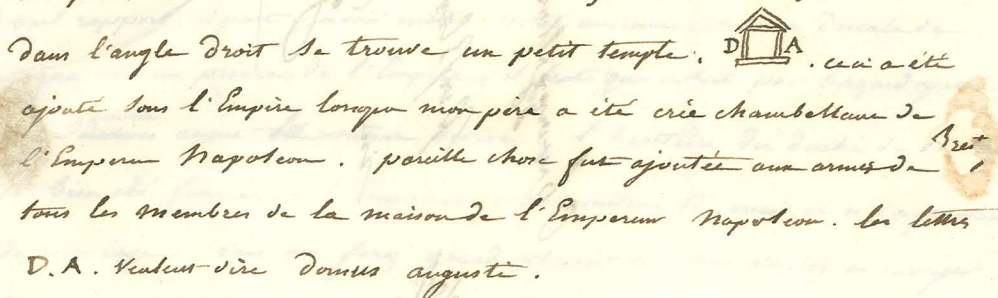 dans l'angle droit se trouve un petit temple. D A . ceci a été
ajouté sous l'Empire lorsque mon père a été créé chambellan de
l'Empereur Napoléon. pareille chose fut ajoutée aux armes de
tous les membres de la maison de l'Empereur Napoléon. les lettres
D. A. veulent dire domus augusti.